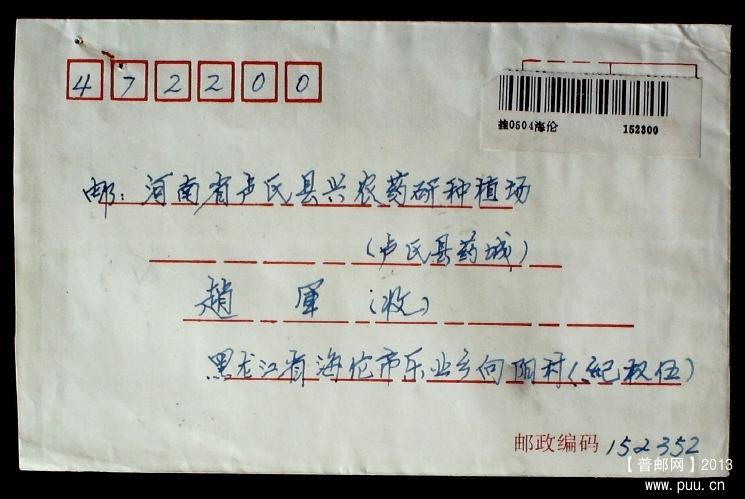 472200
挂0504海伦 152300
邮：河南省卢氏县兴农药研种植场
（卢氏县药城）
趙军（收）
黑龙江省海伦市乐业乡向阳村（纪权伍）
邮政编码 152352
【普邮网】2013
www.puu.cn